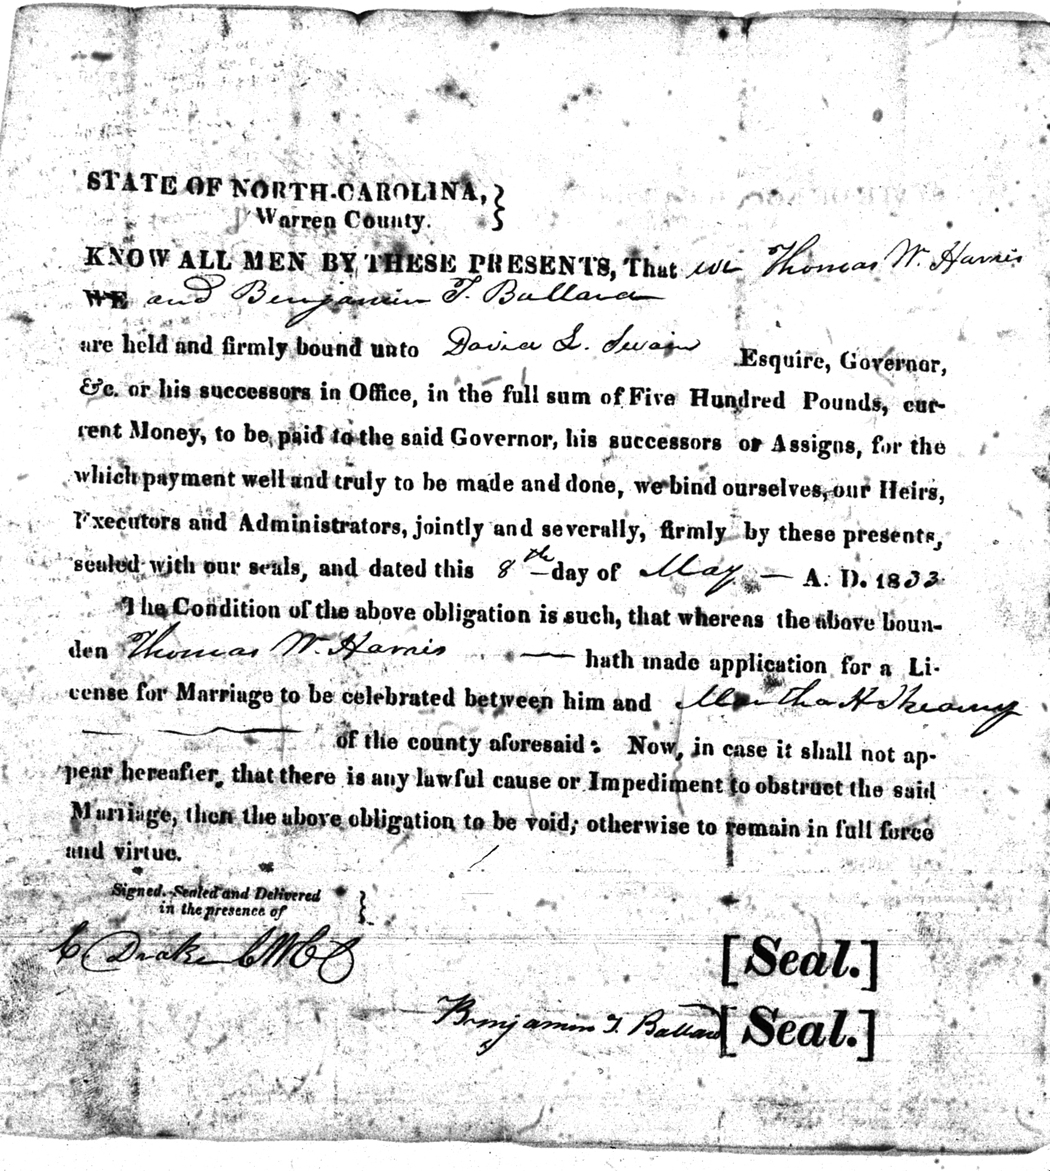 STATE OF NORTH-CAROLINA, }
Warren County. }
KNOW ALL MEN BY THESE PRESENTS, That we Thomas W. Harris
WE and Benjamin T. Ballard
are held and firmly bound unto David L. Swain Esquire, Governor,
&c. or his successors in Office, in the full sum of Five Hundred Pounds, cur-
rent Money, to be paid to the said Governor, his successors or Assigns, for the
which payment well and truly to be made and done, we bind ourselves, our Heirs,
Executors and Administrators, jointly and severally, firmly by these presents,
sealed with our seals, and dated this 8th day of May — A. D. 1833
The Condition of the above obligation is such, that whereas the above boun-
den Thomas W. Harris — hath made application for a Li-
cense for Marriage to be celebrated between him and Martha H Kearny
of the county aforesaid: Now, in case it shall not ap-
pear hereafter, that there is any lawful cause or Impediment to obstruct the said
Marriage, then the above obligation to be void; otherwise to remain in full force
and virtue.
Signed, Sealed and Delivered }
in the presence of }
C Drake CWCC
[Seal.]
Benjamin T. Ballard [Seal.]